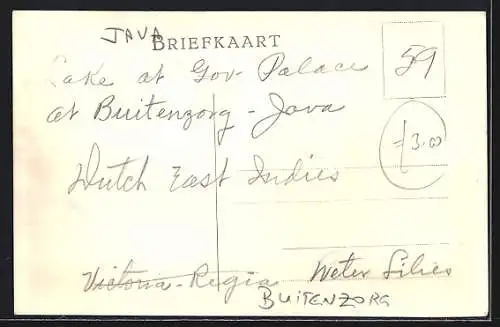 JAVA
BRIEFKAART
Lake at Gov. Palace
59
at Buitenzorg - Java
3.00
Dutch East Indies
Victoria - Regia Water Lilies
BUITENZORG